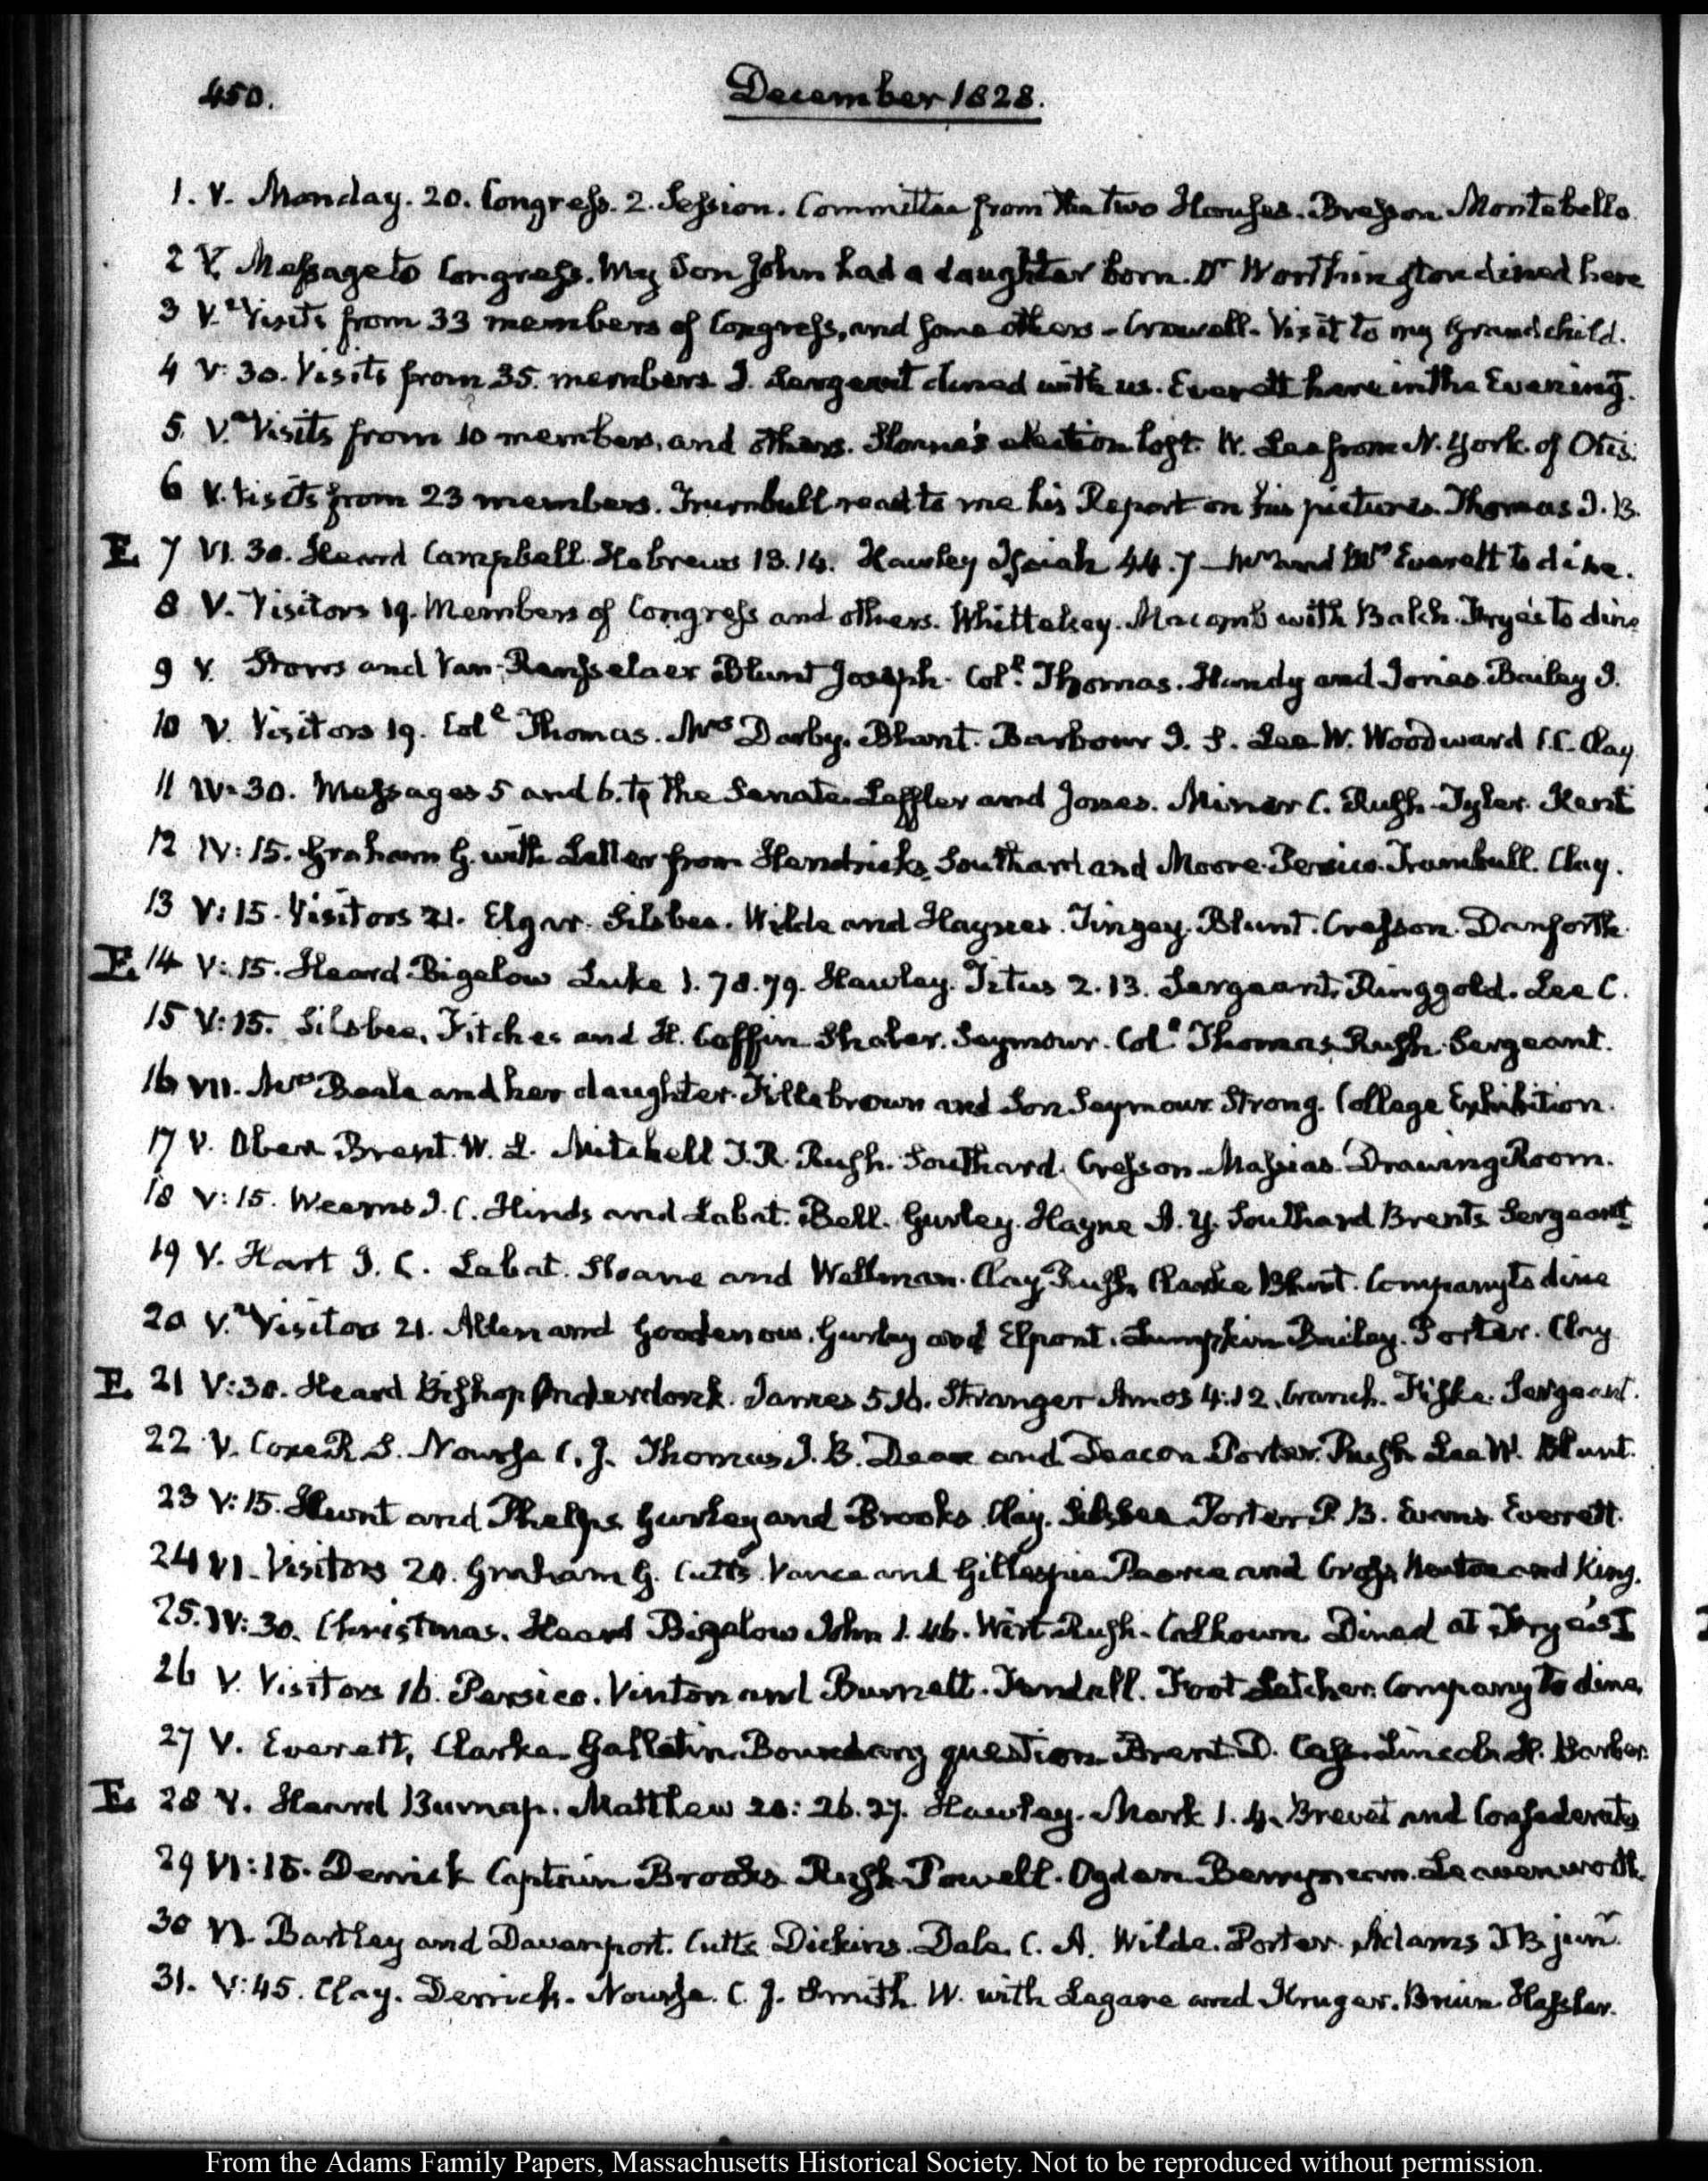 450.
December 1828.
1. V. Monday. 20. Congress. 2. Session. Committee from the two Houses. Bresson. Montebello
2 V. Message to Congress. My Son John had a daughter born. Dr Worthington dined here
3 V. Visits from 33 members of Congress, and some others - Crowell - Visit to my Grandchild.
4 V: 30. Visits from 35. members. J. Sergeant dined with us. Everett here in the Evening.
5. V. Visits from 10 members, and others. election lost. W. Lee from N. York. of Otis.
6 V. Visits from 23 members. Trumbull read to me his Report on his pictures. Thomas J. B.
E. 7 VI. 30. Heard Campbell. Hebrews 13.14. Hawley Isaiah 44.7 - Mr and Mrs Everett to dine.
8 V. Visitors 19. Members of Congress and others. Whittelsey. Macomb with Balch. Frye's to dine
9 V. Storrs and Van Rensselaer Blunt Joseph. Coll. Thomas. Handy and Jones. Bailey J.
10 V. Visitors 19. Coll Thomas. Mrs Darby. Blunt. Barbour J. S. Lee W. Woodward C.C. Clay
11 IV. 30. Messages 5 and 6. to the Senate. Leffler and Jones. Miner C. Rush. Tyler. Kent
12 IV: 15. Graham G. with Letter from Hendricks, Southard and Moore. Persico. Trumbull. Clay.
13 V: 15. Visitors 21. Elgar. Silsbee. Wilde and Haynes. Tingey. Blunt. Cresson. Danforth.
E. 14 V: 15. Heard Bigelow Luke 1. 78.79. Hawley. Titus 2.13. Sergeant. Ringgold. Lee C.
15 V: 15. Silsbee. Fitches and H. Coffin Shaler. Seymour. Coll Thomas, Rush. Sergeant.
16 VII. Mrs Beale and her daughter. Fillebrown and Son Seymour. Strong. College Exhibition.
17 V. Ober. Brent. W. L. Mitchell T.R. Rush. Southard. Cresson. Massias. Drawing Room.
18 V: 15. Weems J. C. Hinds and Labat. Bell. Gurley. Hayne A. Y. Southard Brents Sergeant
19 V. Hart J. C. Labat. Sloane and Wellman. Clay, Rush, Clarke Blunt. Company to dine
20 V. Visitors 21. Allen and Goodenow. Gurley and Lumpkin Bailey. Porter. Clay
E. 21 V: 30. Heard Bishop Onderdonk. James 5.16. Stranger Amos 4:12. Branch. Fiske. Sergeant.
22 V. Coxe R. S. Nourse C. J. Thomas J. B. Deane and Deacon. Porter. Rush Lee W. Blunt.
23 V: 15. Hunt and Phelps. Gurley and Brooks. Clay. Silsbee Porter P. B. Evans. Everett.
24 VI. Visitors 20. Graham G. Cutts. Vance and Gillespie Pearce and Cross, Newton and King.
25. IV: 30. Christmas. Heard Bigelow John 1. 46. Wirt. Rush. Calhoun. Dined at Frye's T
26 V. Visitors 16. Persico. Vinton and Burnett. Kendall. Foot Letcher. Company to dine
27 V. Everett, Clarke. Gallatin. Boundary question. Brent. D. Cass. Lincoln. H. Barber.
E. 28 V. Heard Burnap. Matthew 20: 26.27. Hawley. Mark 1. 4. Brevet and Confederates
29 VI: 15. Derrick Captain Brooks Rush Powell. Ogden. Berryman. Leavenworth.
30 VI. Bartley and Davenport. Cutts Dickins. Dale. C. A. Wilde. Porter. Adams T B junr
31. V: 45. Clay. Derrick. Nourse. C. J. Smith W. with Legare and Kruger. Brun Hassler.
From the Adams Family Papers, Massachusetts Historical Society. Not to be reproduced without permission.